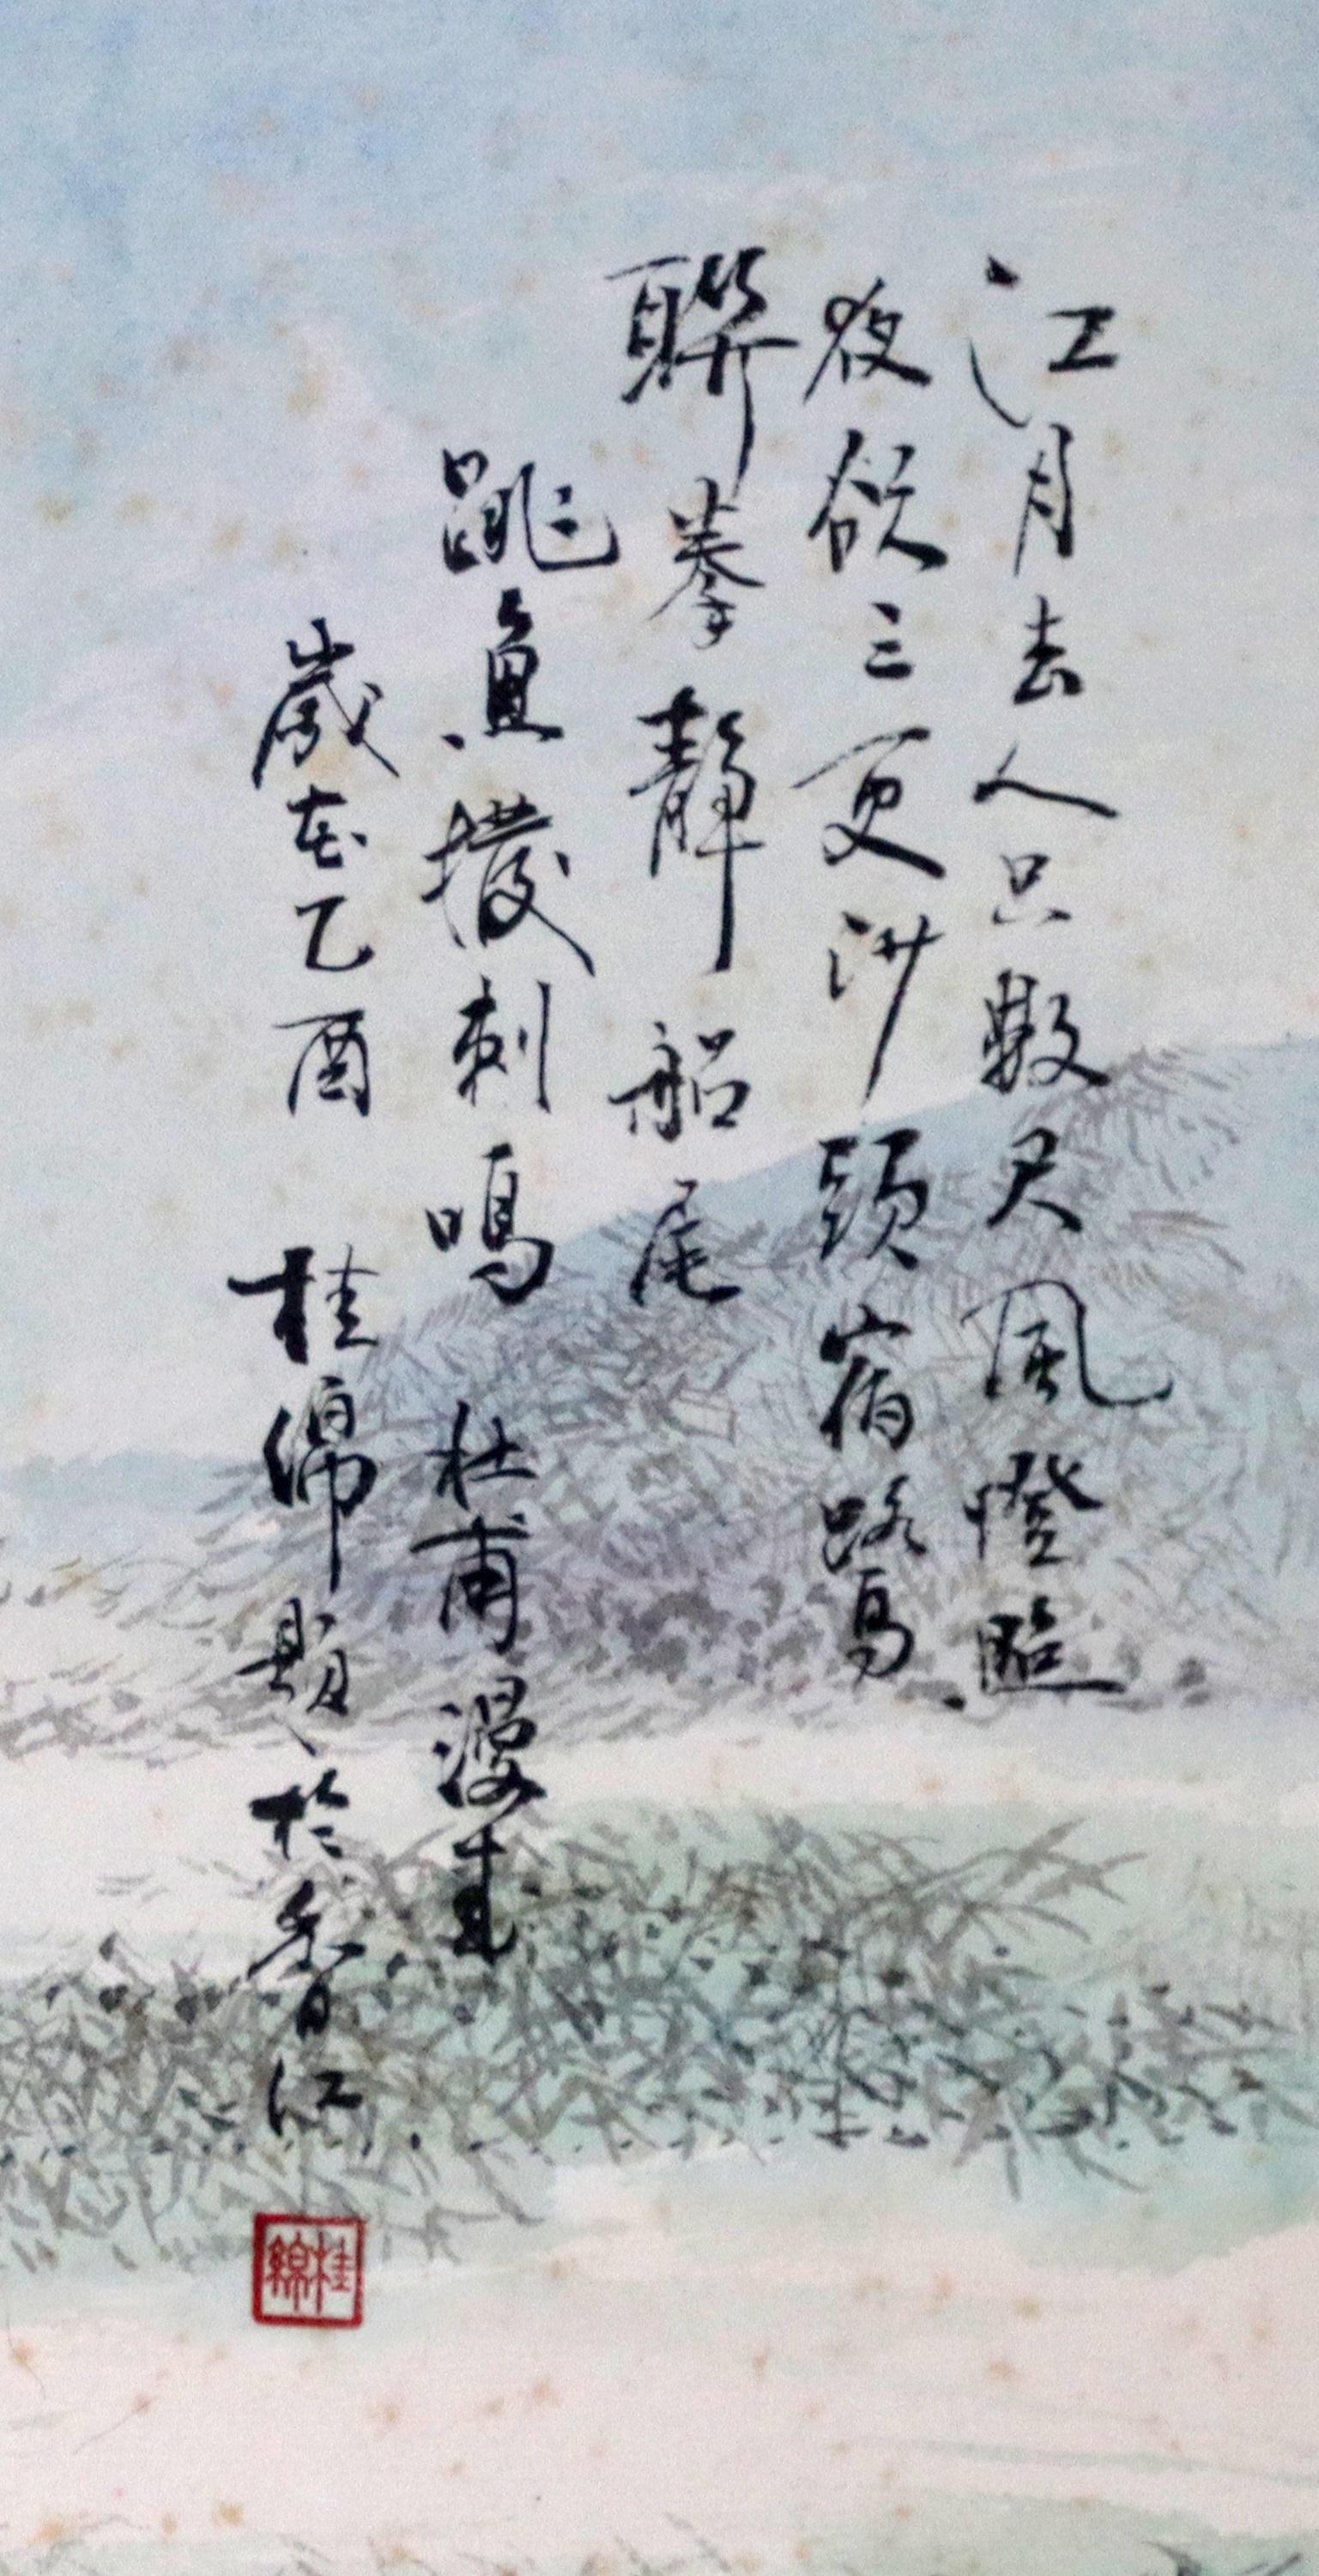 江月去人只數尺風燈照
夜欲三更沙頭宿鷺
聯拳靜船尾
跳魚撥剌鳴 杜甫漫成
歲在乙酉 桂綿題於香江
桂綿